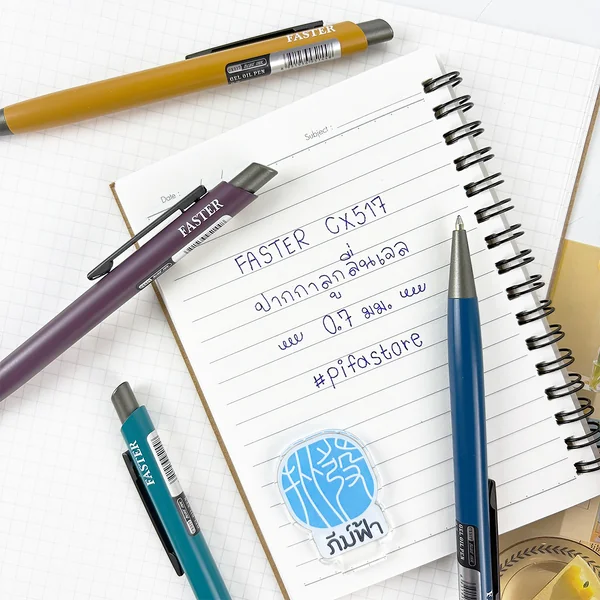 FASTER
GEL OIL PEN
Subject :
Date :
FASTER
FASTER CX517
ปากกาลูกลื่นเจล
0.7 มม.
#pifastore
FASTER
ภีม์ฟ้า
GEL OIL PEN